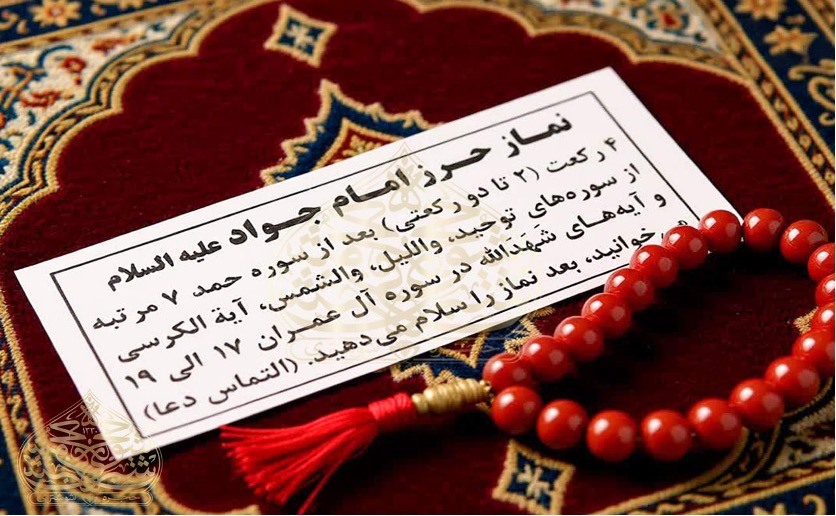 نماز حرز امام جواد علیه السلام
۴ رکعت (۲ تا دو رکعتی) بعد از سوره حمد ۷ مرتبه
از سوره‌های توحید، واللیل، والشمس، آیة الکرسی
و آیه‌های شَهَدَالله در سوره آل عمران ۱۷ الی ۱۹
خوانید، بعد نماز را سلام می‌دهید. (التماس دعا)